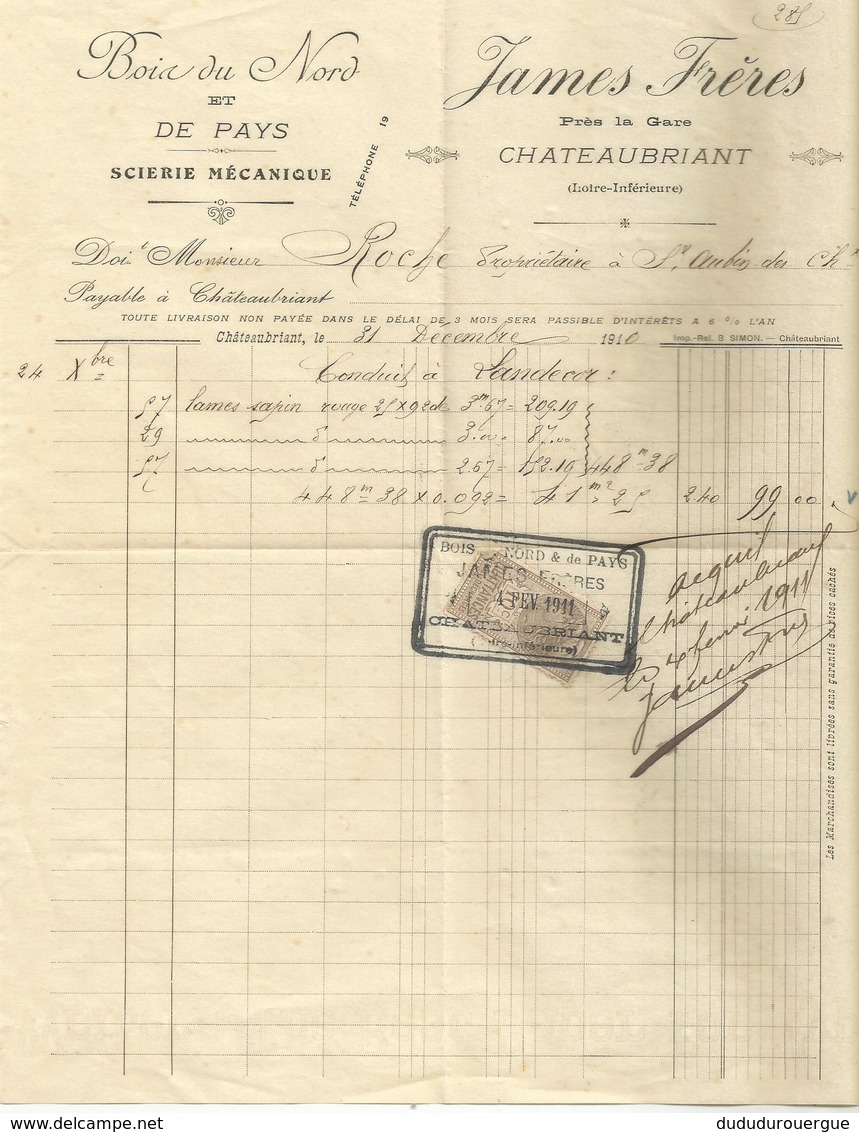 285
Bois du Nord
ET
DE PAYS
SCIERIE MÉCANIQUE
TÉLÉPHONE 19
James Frères
Près la Gare
CHATEAUBRIANT
(Loire-Inférieure)
Doit Monsieur Roche Propriétaire à St Aubin des Chx
Payable à Châteaubriant
TOUTE LIVRAISON NON PAYÉE DANS LE DÉLAI DE 3 MOIS SERA PASSIBLE D'INTÉRÊTS A 6 % L'AN
Châteaubriant, le 31 Décembre 1910
Imp.-Rel. B. SIMON. — Châteaubriant
24 Xbre Conduit à Landecor :
57 lames sapin rouge 25 x 92 de 3m.67 = 209.19
29 d° 3.00 = 87.00
57 d° 2.67 = 152.19 448m38
448m38 x 0.092 = 41m2 25 2.40 99 00
BOIS NORD & de PAYS
JAMES FRÈRES
4 FEV 1911
CHATEAUBRIANT
(Loire-Inférieure)
QUITTANCES
acquit
Châteaubriant
le 4 février 1911
James Frères
Les Marchandises sont livrées sans garantie de vices cachés
dududurouergue